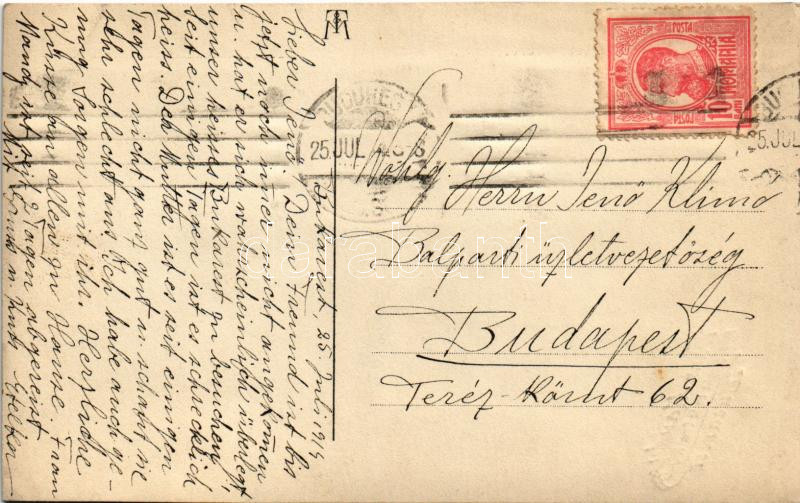 Bukarest, 25. Juli 1914
Lieber Jenö! Dein Freund ist bis
jetzt noch immer nicht angekommen
u. hat es sich wahrscheinlich überlegt
unser heisses Bukarest zu besuchen,
seit einigen Tagen ist es schrecklich
heiss. Der Mutter ist es seit einigen
Tagen nicht ganz gut u. schaut sie
sehr schlecht aus. Ich habe auch ge-
nug Sorgen mit ihr. Herzliche
Küsse an alle zu Hause. Frau
ist seit 2 Tagen abgereist
Mit Gruss u. Kuss
POSTA
ROMANIA
10
BANI
25 JUL
25 JUL
Herrn Jenö Klima
Balparti üzletvezetőség
Budapest
Teréz-Körut 62.
darabanth